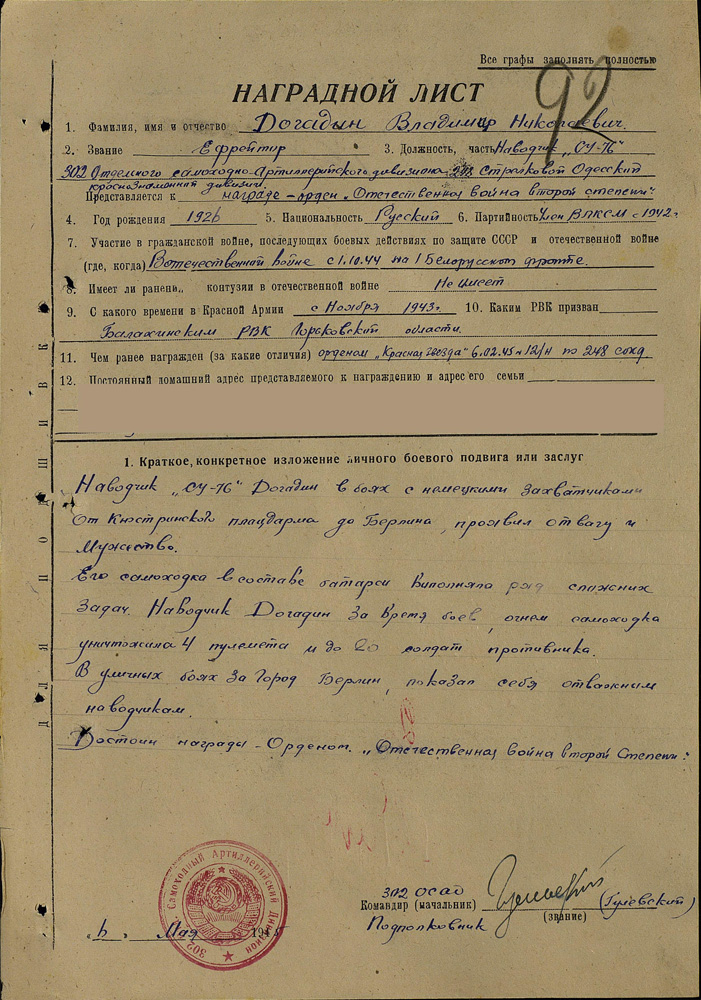 Все графы заполнять полностью
92
НАГРАДНОЙ ЛИСТ
1. Фамилия, имя и отчество Догадын Владимир Николаевич.
2. Звание Ефрейтор 3. Должность, часть Наводчик „СУ-76"
302 Отдельного самоходно-Артиллерийского дивизиона Стрелковой Одесской
краснознаменной дивизии.
Представляется к награде – орден „Отечественная война второй степени"
4. Год рождения 1926 5. Национальность Русский 6. Партийность член ВЛКСМ с 1942 г
7. Участие в гражданской войне, последующих боевых действиях по защите СССР и отечественной войне
(где, когда) В отечественной войне с 1.10.44 на 1 Белорусском фронте.
8. Имеет ли ранени„ контузии в отечественной войне Не имеет
9. С какого времени в Красной Армии с Ноября 1943 г. 10. Каким РВК призван
Балахнинским РВК Горьковской области.
11. Чем ранее награжден (за какие отличия) орденом „Красная звезда" 6.02.45 г 12/н по 248 сд
12. Постоянный домашний адрес представляемого к награждению и адрес его семьи
1. Краткое, конкретное изложение личного боевого подвига или заслуг
Наводчик „СУ-76" Догадин в боях с немецкими захватчиками
от Кюстринского плацдарма до Берлина, проявил отвагу и
мужество.
Его самоходка в составе батареи выполняла ряд сложних
задач. Наводчик Догадин за время боев, огнем самоходка
уничтожила 4 пулемета и до 20 солдат противника.
В уличных боях за город Берлин, показал себя отважным
наводчикам.
Достоин награды – Орденом. „Отечественная война второй Степени".
ДЛЯ ПОДШИВКИ
302 Самоходный Артиллерийский Дивизион
6 Мая 194
302 ОСАД
Командир (начальник) (Гулевский)
(звание)
Подполковник